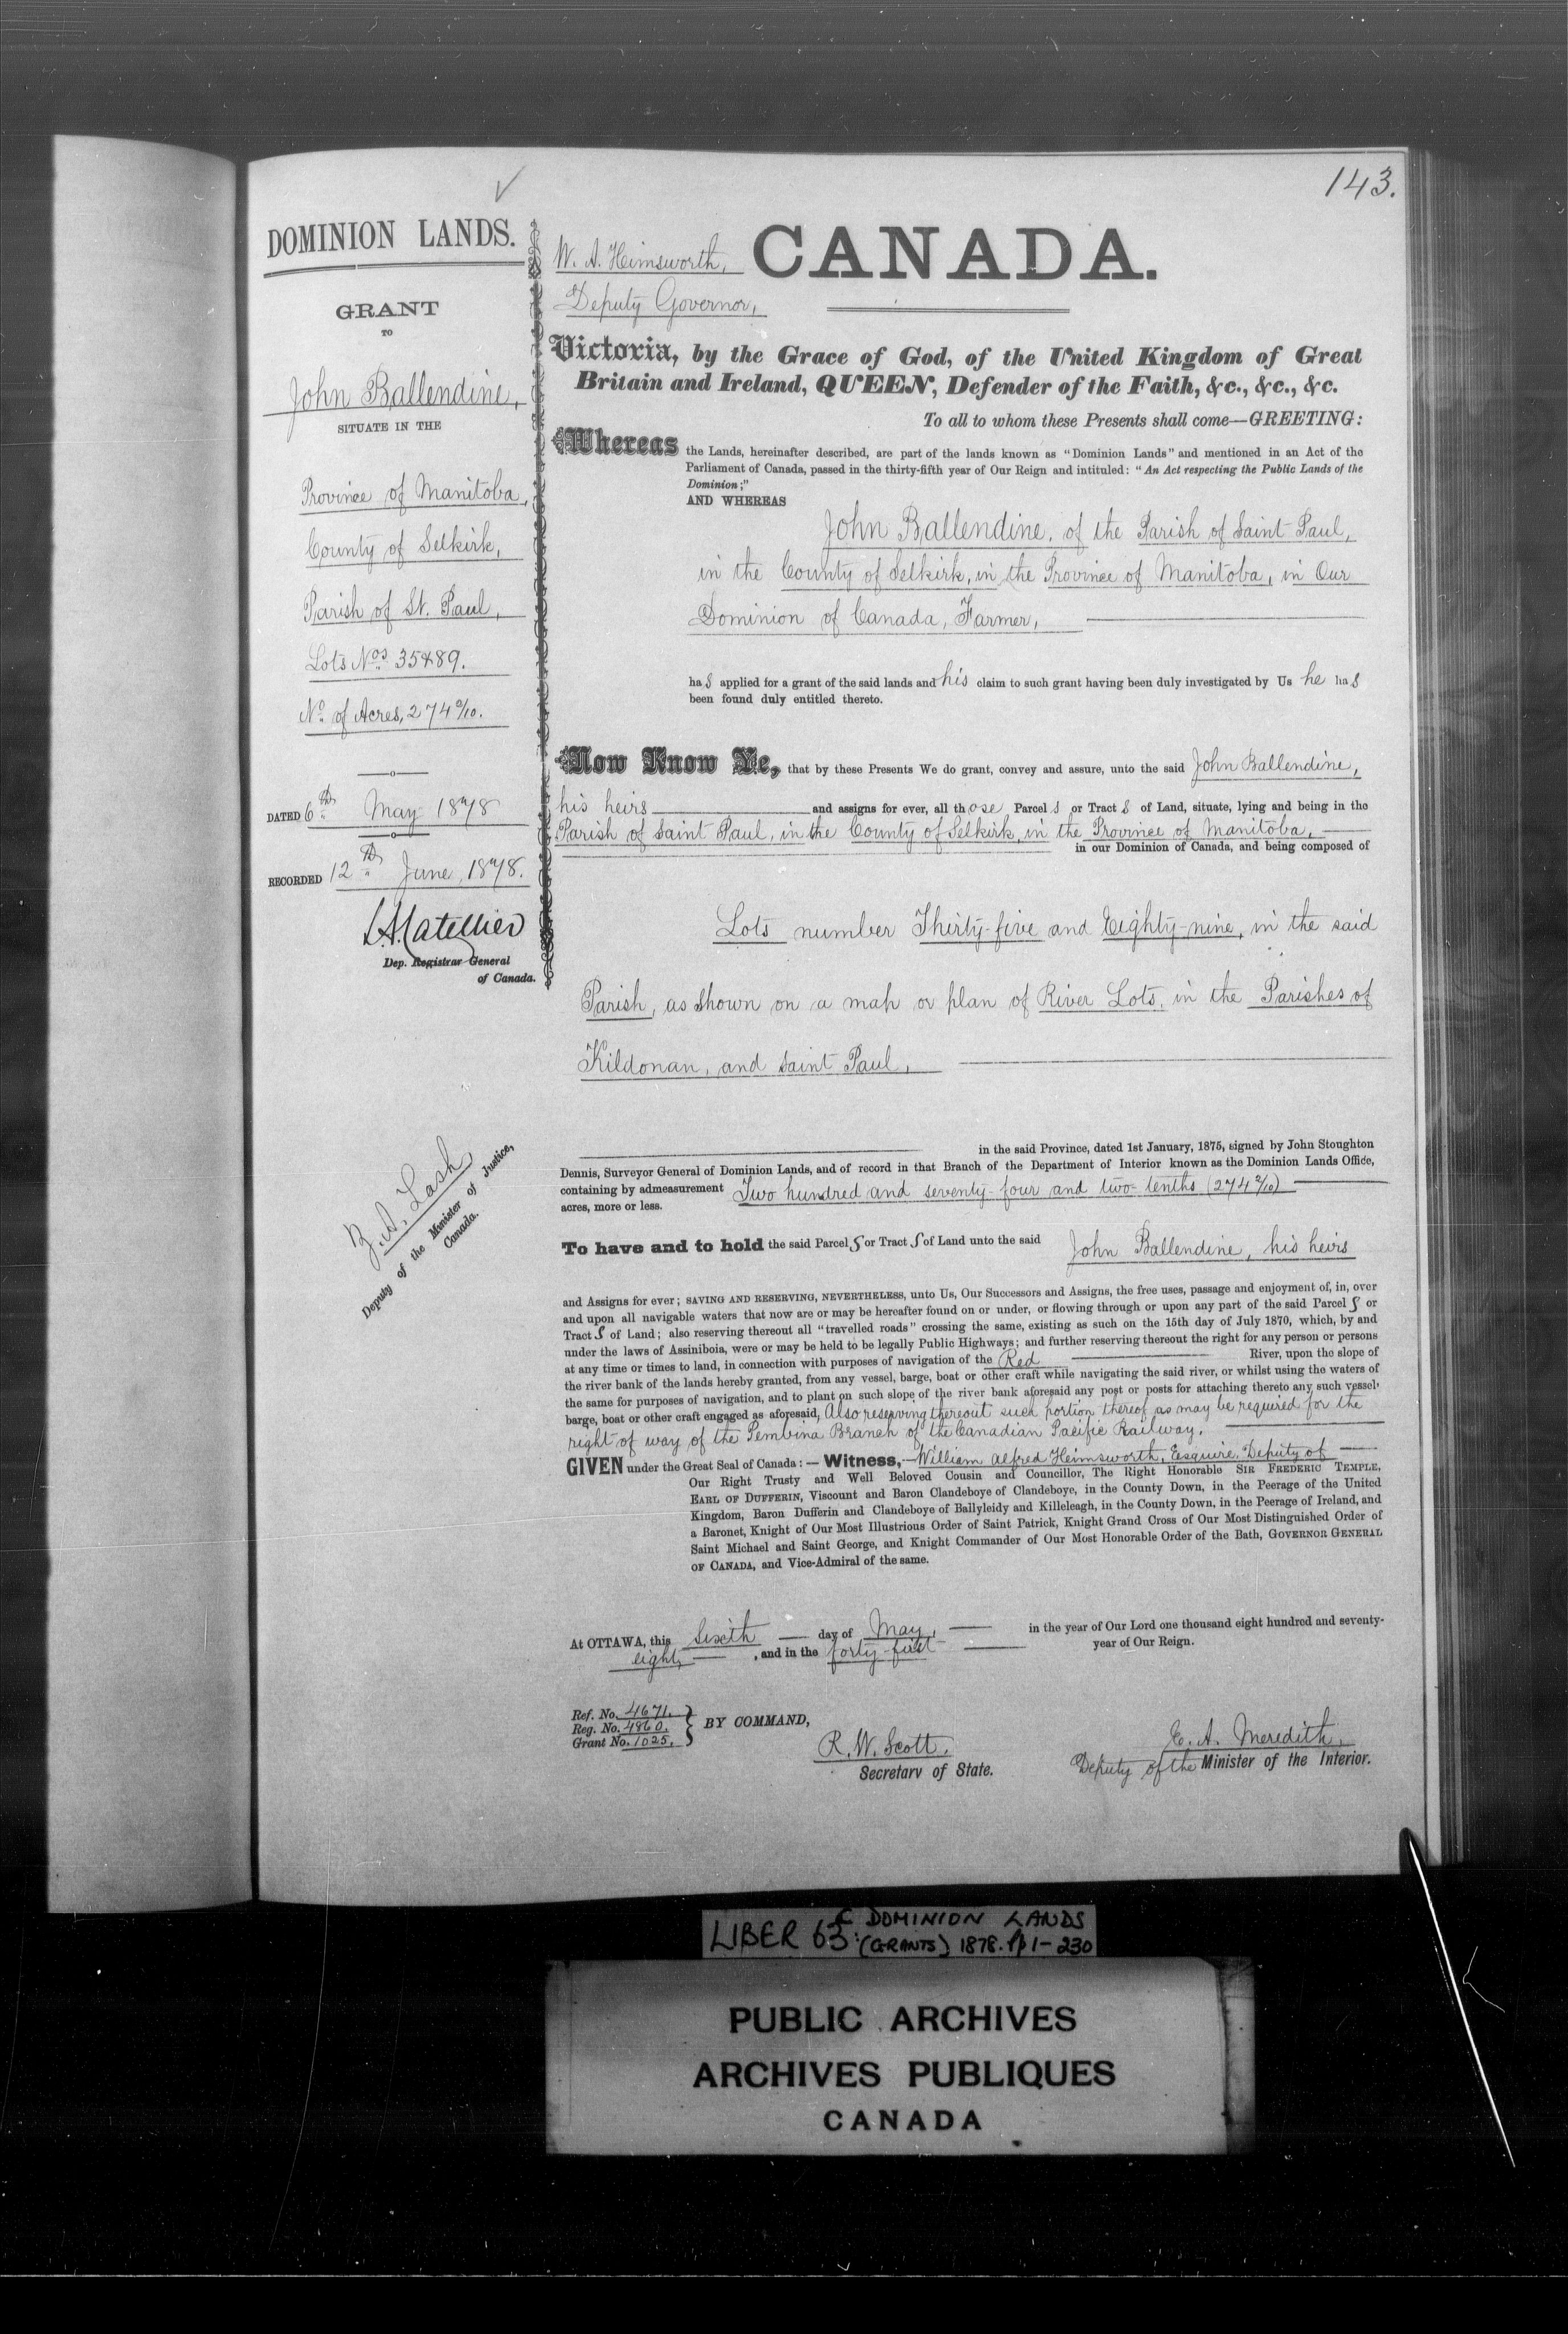 143.
DOMINION LANDS.
GRANT
TO
John Ballendine,
SITUATE IN THE
Province of Manitoba,
County of Selkirk,
Parish of St. Paul,
Lots Nos. 35 & 89.
No. of Acres, 274 2/10.
DATED 6th May 1878
RECORDED 12th June, 1878.
Dep. Registrar General
of Canada.
Z. A. Lash,
Deputy of the Minister of Justice,
Canada.
W. A. Himsworth,
Deputy Governor,
CANADA.
Victoria, by the Grace of God, of the United Kingdom of Great
Britain and Ireland, QUEEN, Defender of the Faith, &c., &c., &c.
To all to whom these Presents shall come—GREETING:
Whereas the Lands, hereinafter described, are part of the lands known as "Dominion Lands" and mentioned in an Act of the
Parliament of Canada, passed in the thirty-fifth year of Our Reign and intituled: "An Act respecting the Public Lands of the
Dominion;"
AND WHEREAS
John Ballendine, of the Parish of Saint Paul,
in the County of Selkirk, in the Province of Manitoba, in Our
Dominion of Canada, Farmer,
has applied for a grant of the said lands and his claim to such grant having been duly investigated by Us he has
been found duly entitled thereto.
Now Know Ye, that by these Presents We do grant, convey and assure, unto the said John Ballendine,
his heirs and assigns for ever, all those Parcels or Tracts of Land, situate, lying and being in the
Parish of Saint Paul, in the County of Selkirk, in the Province of Manitoba,
in our Dominion of Canada, and being composed of
Lots number Thirty-five and Eighty-nine, in the said
Parish, as shown on a map or plan of River Lots, in the Parishes of
Kildonan, and Saint Paul,
in the said Province, dated 1st January, 1875, signed by John Stoughton
Dennis, Surveyor General of Dominion Lands, and of record in that Branch of the Department of Interior known as the Dominion Lands Office,
containing by admeasurement Two hundred and seventy-four and two-tenths (274 2/10)
acres, more or less.
To have and to hold the said Parcels or Tracts of Land unto the said John Ballendine, his heirs
and Assigns for ever; SAVING AND RESERVING, NEVERTHELESS, unto Us, Our Successors and Assigns, the free uses, passage and enjoyment of, in, over
and upon all navigable waters that now are or may be hereafter found on or under, or flowing through or upon any part of the said Parcels or
Tracts of Land; also reserving thereout all "travelled roads" crossing the same, existing as such on the 15th day of July 1870, which, by and
under the laws of Assiniboia, were or may be held to be legally Public Highways; and further reserving thereout the right for any person or persons
at any time or times to land, in connection with purposes of navigation of the Red River, upon the slope of
the river bank of the lands hereby granted, from any vessel, barge, boat or other craft while navigating the said river, or whilst using the waters of
the same for purposes of navigation, and to plant on such slope of the river bank aforesaid any post or posts for attaching thereto any such vessel,
barge, boat or other craft engaged as aforesaid, Also reserving thereout such portion thereof as may be required for the
right of way of the Pembina Branch of the Canadian Pacific Railway.
GIVEN under the Great Seal of Canada:— Witness,—William Alfred Himsworth, Esquire, Deputy of
Our Right Trusty and Well Beloved Cousin and Councillor, The Right Honorable SIR FREDERIC TEMPLE,
EARL OF DUFFERIN, Viscount and Baron Clandeboye of Clandeboye, in the County Down, in the Peerage of the United
Kingdom, Baron Dufferin and Clandeboye of Ballyleidy and Killeleagh, in the County Down, in the Peerage of Ireland, and
a Baronet, Knight of Our Most Illustrious Order of Saint Patrick, Knight Grand Cross of Our Most Distinguished Order of
Saint Michael and Saint George, and Knight Commander of Our Most Honorable Order of the Bath, GOVERNOR GENERAL
OF CANADA, and Vice-Admiral of the same.
At OTTAWA, this Sixth day of May, in the year of Our Lord one thousand eight hundred and seventy-
eight, , and in the forty-first year of Our Reign.
Ref. No. 4671.
Reg. No. 4960.
Grant No. 1025.
BY COMMAND,
R. W. Scott,
Secretary of State.
E. A. Meredith,
Deputy of the Minister of the Interior.
LIBER 63: C DOMINION LANDS
(GRANTS) 1878. pp 1-230
PUBLIC ARCHIVES
ARCHIVES PUBLIQUES
CANADA